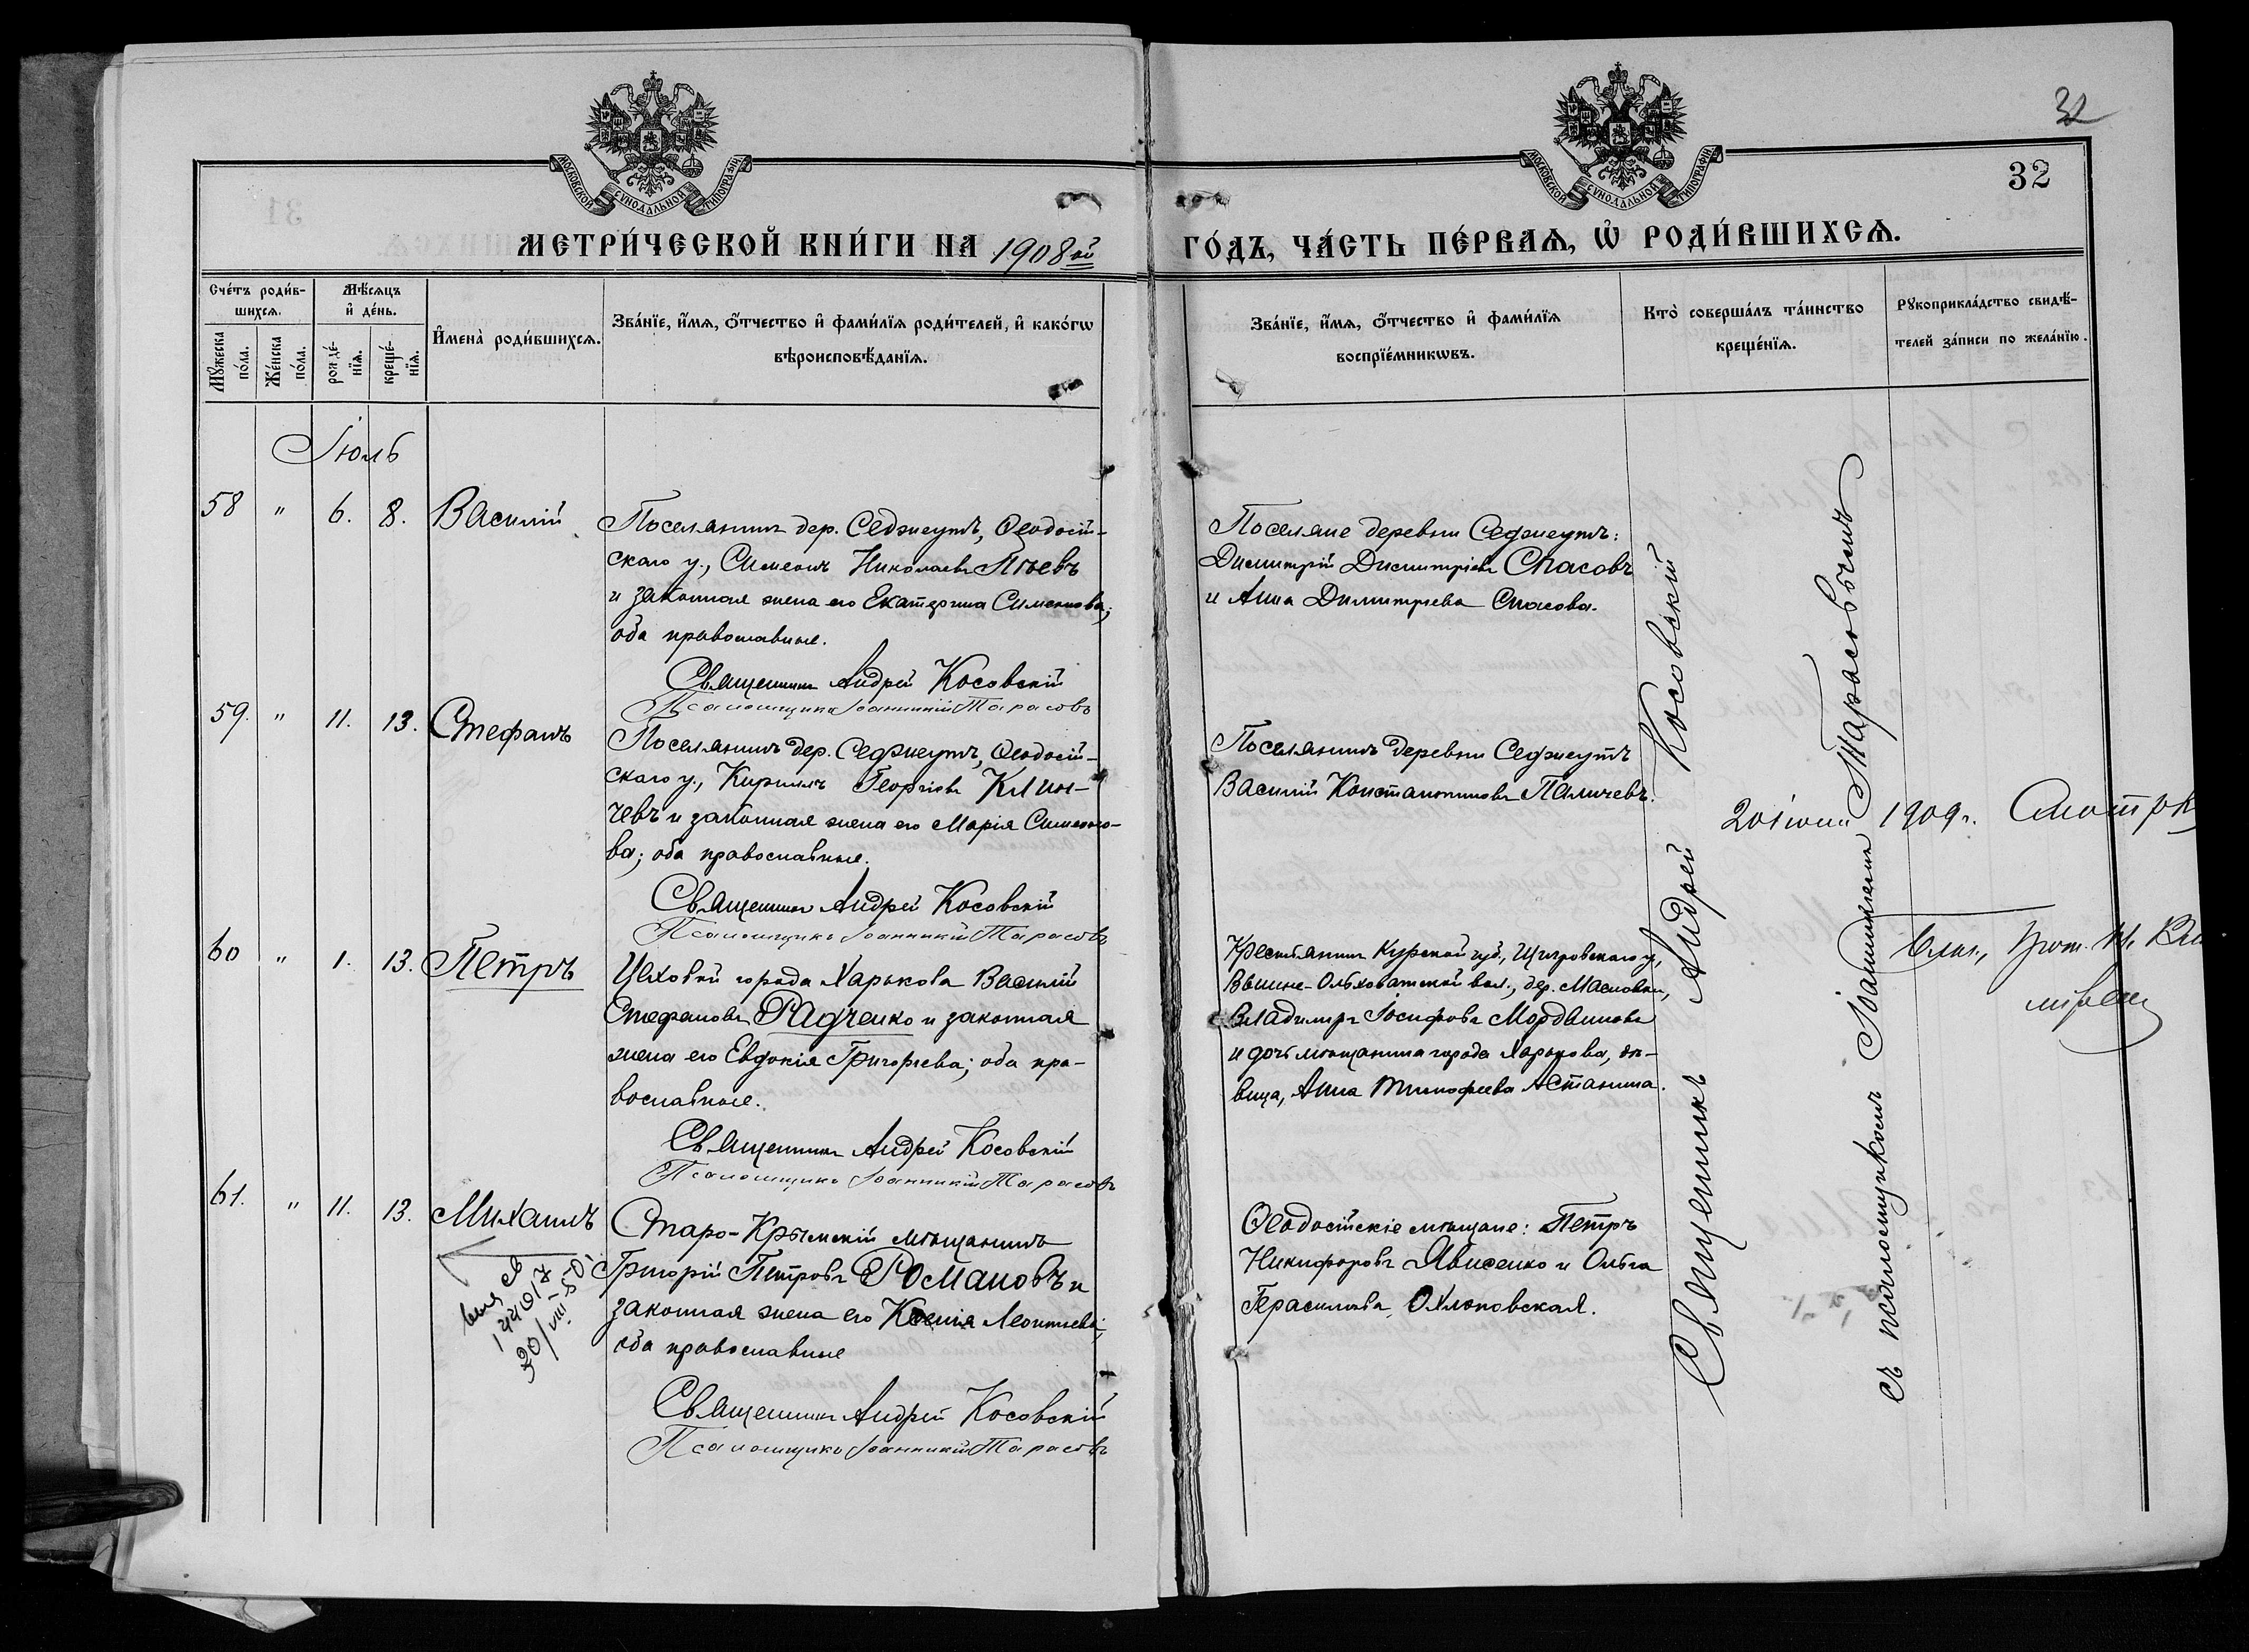 32
32
МОСКОВСКОЙ СѴНОДАЛЬНОЙ ТИПОГРАФІИ
МОСКОВСКОЙ СѴНОДАЛЬНОЙ ТИПОГРАФІИ
МЕТРИ́ЧЕСКОЙ КНИ́ГИ НА 1908ой
ГО́ДЪ, ЧА́СТЬ ПЕ́РВАѦ, Ѿ РОДИ́ВШИХСѦ.
Сче́тъ роди́в-
шихсѧ.
Мꙋжеска по́ла.
Же́нска по́ла.
Мѣ́сѧцъ
и҆ де́нь.
рожде́-
нїѧ.
креще́-
нїѧ.
И҆мена̀ роди́вшихсѧ.
Зва́нїе, и҆́мѧ, ѻ҆́тчество и҆ фами́лїѧ роди́телей, и҆ како́гѡ
вѣроисповѣ́данїѧ.
Зва́нїе, и҆́мѧ, ѻ҆́тчество и҆ фами́лїѧ
воспрїе́мникѡвъ.
Кто̀ соверша́лъ та́инство
креще́нїѧ.
Рꙋкоприкла́дство свидѣ́-
телей за́писи по жела́нїю.
Іюль
58 " 6. 8. Василій
Поселянинъ дер. Седжеутъ, Ѳеодосій-
скаго у., Симеонъ Николаевъ
и законная жена его Екатерина Симеонова;
оба православные.
Священникъ Андрей Косовскій
Псаломщикъ Іоанникій Тарасовъ
Поселяне деревни Седжеутъ:
Димитрій Димитріевъ Спасовъ
и Анна Димитриева Спасова.
59. " 11. 13. Стефанъ
Поселянинъ дер. Седжеутъ, Ѳеодосій-
скаго у., Кириллъ Георгіевъ Клин-
чевъ и законная жена его Марія Симеоно-
ва; оба православные.
Священникъ Андрей Косовскій
Псаломщикъ Іоанникій Тарасовъ
Поселянинъ деревни Седжеутъ
Василій Константиновъ Паличевъ.
60 " 1. 13. Петръ
Цеховой города Харькова Василій
Стефановъ Радченко и законная
жена его Евдокія Григорьева; оба пра-
вославные.
Священникъ Андрей Косовскій
Псаломщикъ Іоанникій Тарасовъ
Крестьянинъ Курской губ., Щигровскаго у.,
Вышне-Ольховатской вол., дер. Масловки,
Владимиръ Іосифовъ Мордвиновъ
и дочь мѣщанина города Харькова, дѣ-
вица, Анна Тимофеева Астанина.
61. " 11. 13. Михаилъ
Старо-Крымскій мѣщанинъ
Григорій Петровъ Романовъ и
законная жена его Ксенія Леонтьева;
оба православные
Священникъ Андрей Косовскій
Псаломщикъ Іоанникій Тарасовъ
Ѳеодосійскіе мѣщане: Петръ
Никифоровъ Явисенко и Ольга
Герасимова Охлоповская.
Священникъ Андрей Косовскій
съ псаломщикомъ Іоанникіемъ Тарасовымъ
1909 г.